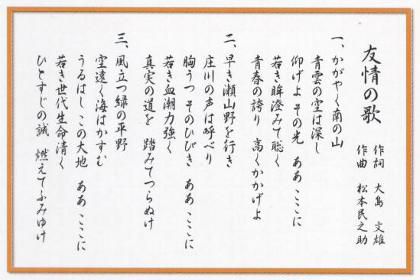 友情の歌
作詞 大島 文雄
作曲 松本民之助
一、かがやく南の山
青雲の空は深し
仰げよ その光 ああ ここに
若き眸澄みて聡く
青春の誇り 高くかかげよ
二、早き瀬山野を行き
庄川の声は呼べり
胸うつ そのひびき ああ ここに
若き血潮力強く
真実の道を 踏みてつらぬけ
三、風立つ緑の平野
空遠く海はかすむ
うるはし この大地 ああ ここに
若き世代生命清く
ひとすじの誠 燃えてふみゆけ